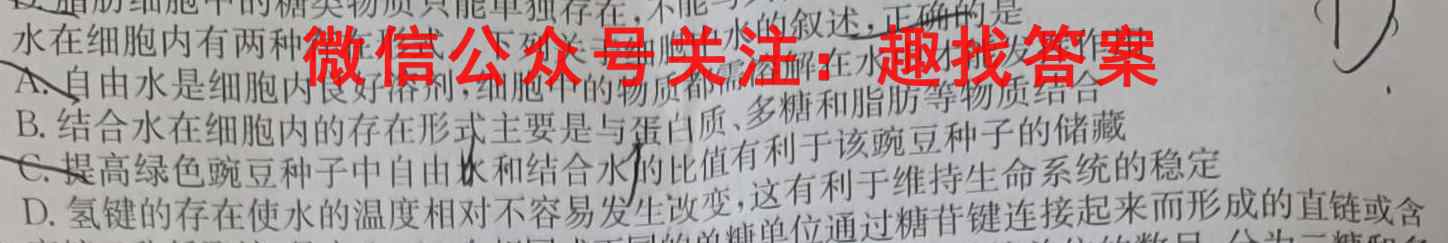 脂肪细胞中的糖类物质只能单独存在,不能
水在细胞内有两种存在形式,下列关于细胞中水的叙述,正确的是
微信公众号关注:趣找答案
A. 自由水是细胞内良好溶剂,细胞中的物质都需溶解在水中才能发挥作用
B. 结合水在细胞内的存在形式主要是与蛋白质、多糖和脂肪等物质结合
C. 提高绿色豌豆种子中自由水和结合水的比值有利于该豌豆种子的储藏
D. 氢键的存在使水的温度相对不容易发生改变,这有利于维持生命系统的稳定
单糖单位通过糖苷键连接起来而形成的直链或含